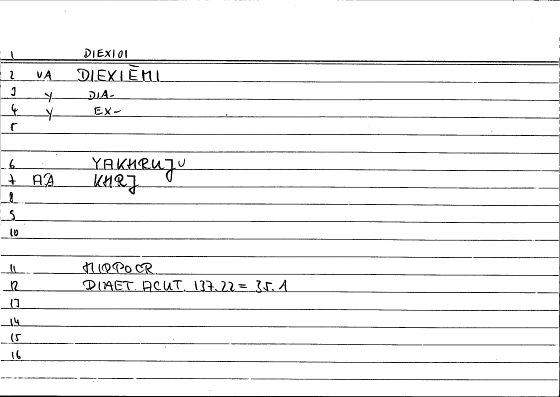 1 DIEXIOI
2 VA DIEXIĒMI
3 Y DIA-
4 Y EX-
5
6 YAKHRUJU
7 AD KHRJ
8
9
10
11 HIPPOCR
12 DIAET. ACUT. 137.22 = 35.1
13
14
15
16